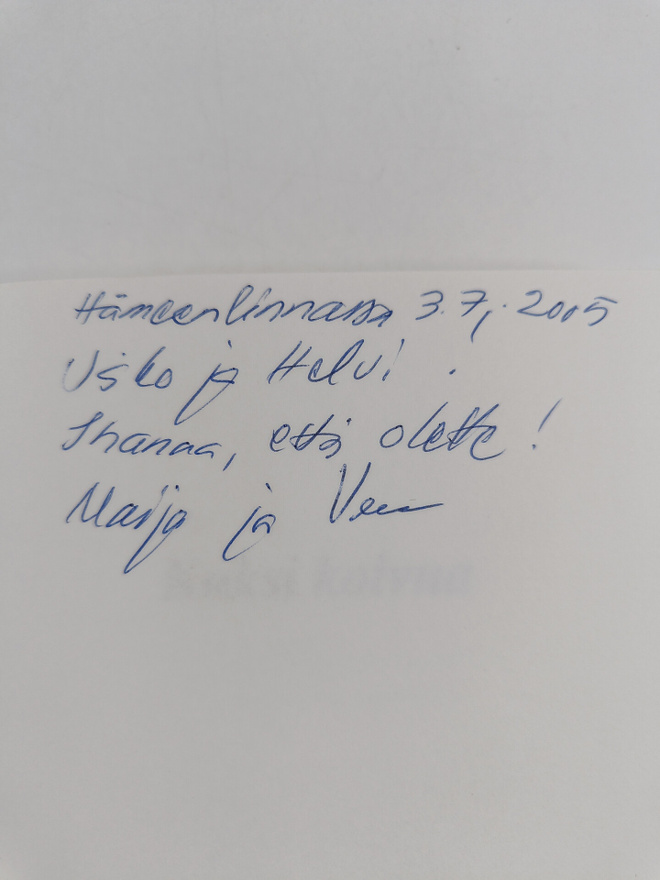 Hämeenlinnassa 3.7. 2005
Usko ja Helvi!
Ihanaa, että olette!
Marja ja
Kaksi kaivua